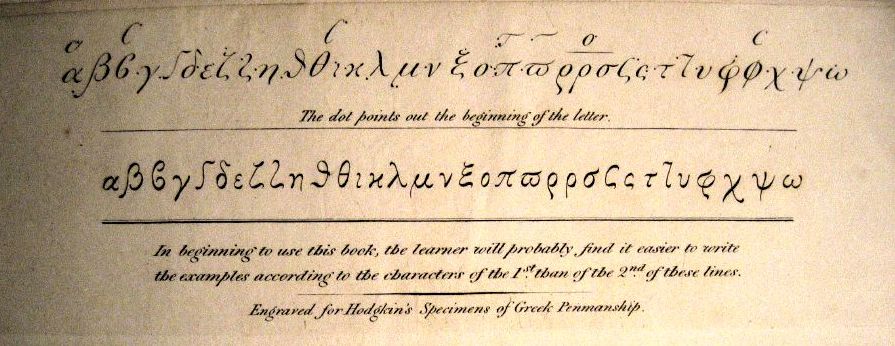 αβϐγſδεζζηϑθικλμνξοπϖρρσϛςτ⁊υφϕχψω
The dot points out the beginning of the letter.
αβϐγſδεζζηϑθικλμνξοπϖρρσϛςτ⁊υφχψω
In beginning to use this book, the learner will probably find it easier to write
the examples according to the characters of the 1st. than of the 2nd. of these lines.
Engraved for Hodgkin's Specimens of Greek Penmanship.